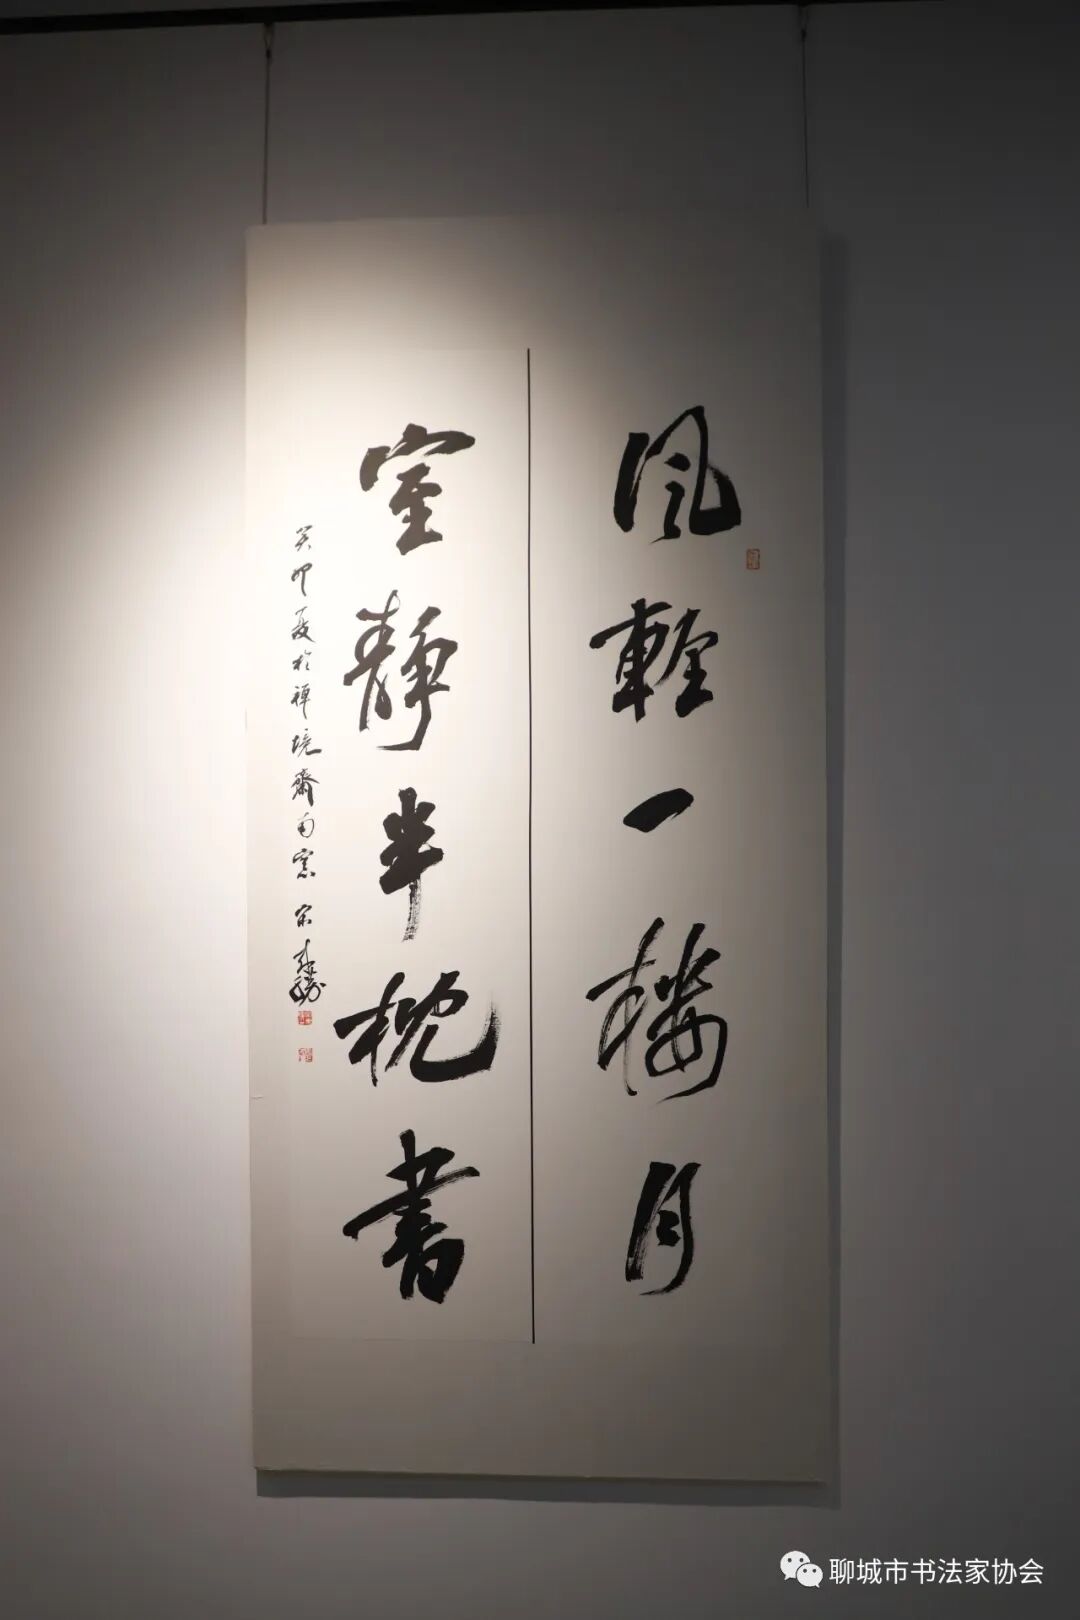 風輕一樓月
室靜半枕書
癸卯夏於禪境齋南窓 宋
聊城市书法家协会